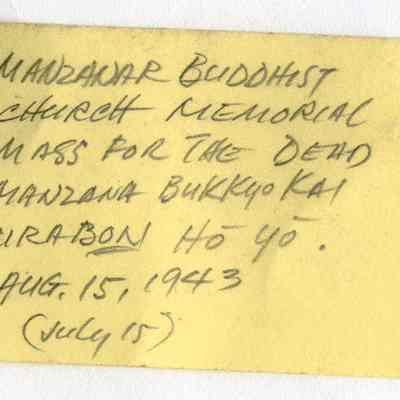 MANZANAR BUDDHIST
CHURCH MEMORIAL
MASS FOR THE DEAD
MANZANA BUKKYO KAI
URABON HŌ YŌ.
AUG. 15, 1943
(July 15)